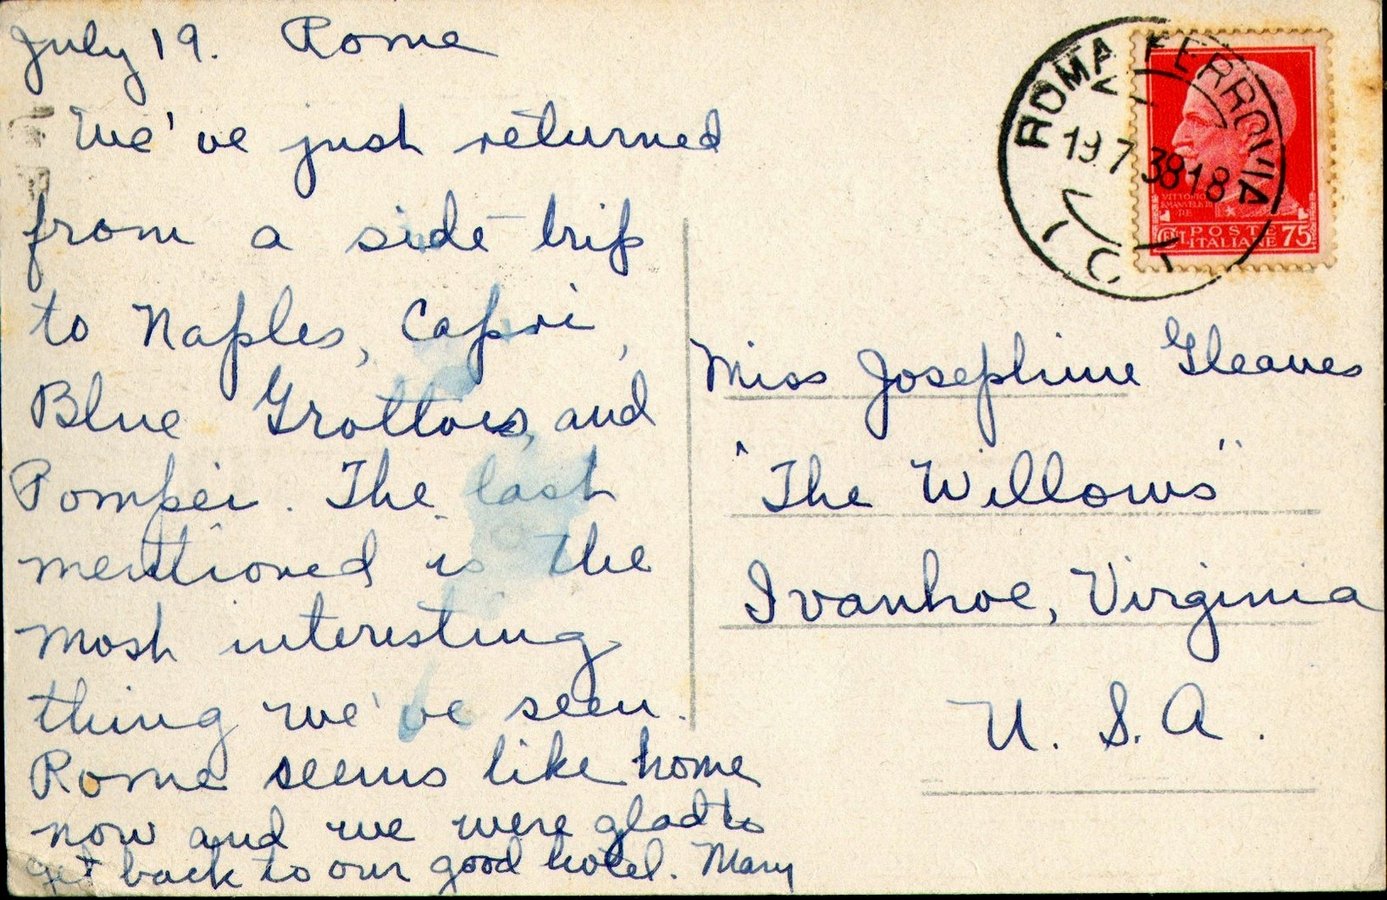 July 19. Rome
We've just returned
from a side trip
to Naples, Capri,
Blue Grottoes, and
Pompei. The last
mentioned is the
most interesting
thing we've seen.
Rome seems like home
now and we were glad to
get back to our good hotel. Mary
ROMA FERROVIA
19.7 38 18
VITTORIO
EMANUELE III
RE
POSTE
ITALIANE
CENT. 75
Miss Josephine Gleaves
"The Willows"
Ivanhoe, Virginia
U. S. A.